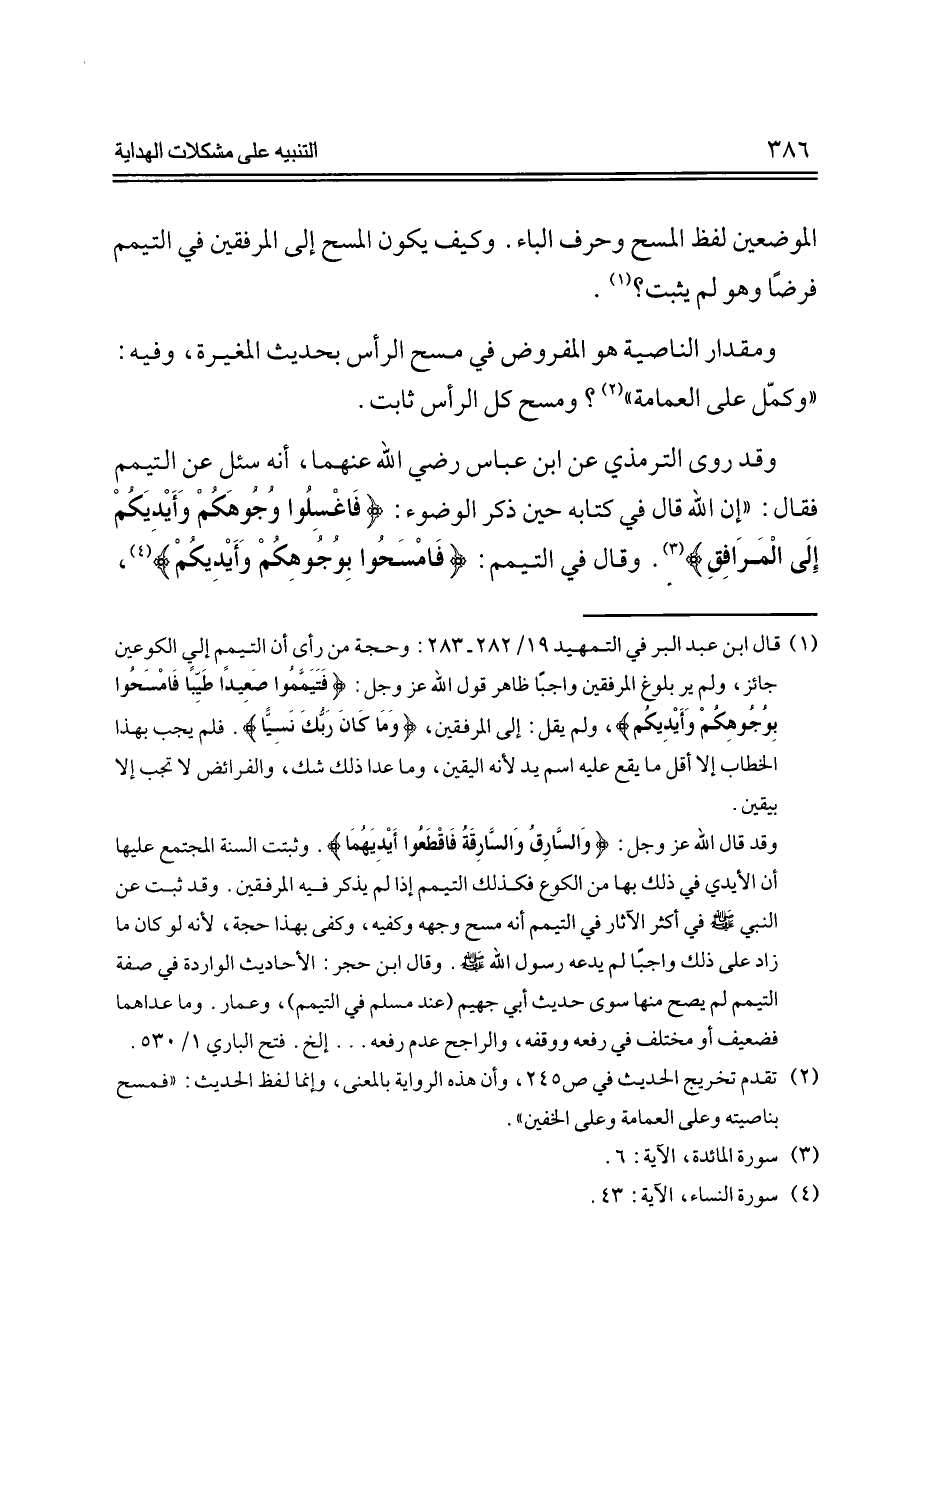 ٣٨٦ التنبيه على مشكلات الهداية
الموضعين لفظ المسح وحرف الباء. وكيف يكون المسح إلى المرفقين في التيمم
فرضًا وهو لم يثبت؟(١) .
ومقدار الناصية هو المفروض في مسح الرأس بحديث المغيرة، وفيه:
«وكمّل على العمامة»(٢)؟ ومسح كل الرأس ثابت.
وقد روى الترمذي عن ابن عباس رضي الله عنهما، أنه سئل عن التيمم
فقال: «إن الله قال في كتابه حين ذكر الوضوء: ﴿فَاغْسِلُوا وُجُوهَكُمْ وَأَيْدِيَكُمْ
إِلَى الْمَرَافِقِ﴾(٣). وقال في التيمم: ﴿فَامْسَحُوا بِوُجُوهِكُمْ وَأَيْدِيكُمْ﴾(٤)،
(١) قال ابن عبد البر في التمهيد ١٩/ ٢٨٢ـ٢٨٣: وحجة من رأى أن التيمم إلي الكوعين
جائز، ولم ير بلوغ المرفقين واجبًا ظاهر قول الله عز وجل: ﴿فَتَيَمَّمُوا صَعِيدًا طَيِّبًا فَامْسَحُوا
بِوُجُوهِكُمْ وَأَيْدِيكُم﴾، ولم يقل: إلى المرفقين، ﴿وَمَا كَانَ رَبُّكَ نَسِيًّا﴾. فلم يجب بهذا
الخطاب إلا أقل ما يقع عليه اسم يد لأنه اليقين، وما عدا ذلك شك، والفرائض لا تجب إلا
بيقين.
وقد قال الله عز وجل: ﴿وَالسَّارِقُ وَالسَّارِقَةُ فَاقْطَعُوا أَيْدِيَهُمَا﴾. وثبتت السنة المجتمع عليها
أن الأيدي في ذلك بها من الكوع فكذلك التيمم إذا لم يذكر فيه المرفقين. وقد ثبت عن
النبي ﷺ في أكثر الآثار في التيمم أنه مسح وجهه وكفيه، وكفى بهذا حجة، لأنه لو كان ما
زاد على ذلك واجبًا لم يدعه رسول الله ﷺ. وقال ابن حجر: الأحاديث الواردة في صفة
التيمم لم يصح منها سوى حديث أبي جهيم (عند مسلم في التيمم)، وعمار. وما عداهما
فضعيف أو مختلف في رفعه ووقفه، والراجح عدم رفعه... إلخ. فتح الباري ١/ ٥٣٠.
(٢) تقدم تخريج الحديث في ص٢٤٥، وأن هذه الرواية بالمعنى، وإنما لفظ الحديث: «فمسح
بناصيته وعلى العمامة وعلى الخفين».
(٣) سورة المائدة، الآية: ٦.
(٤) سورة النساء، الآية: ٤٣.